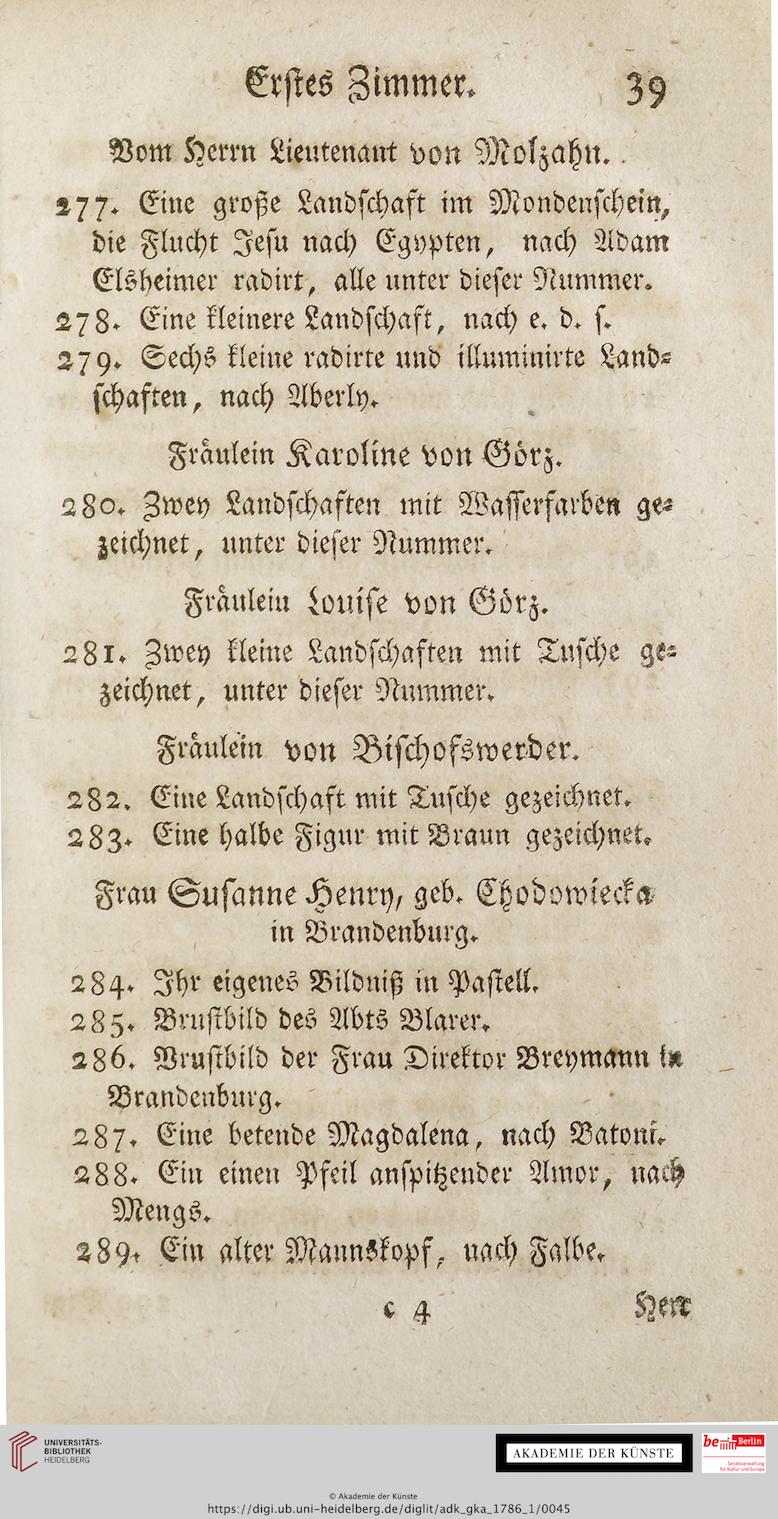 Erſtes Zimmer. 39
Vom Herrn Lieutenant von Molzahn.
277. Eine große Landſchaft im Mondenſchein,
die Flucht Jeſu nach Egypten, nach Adam
Elsheimer radirt, alle unter dieſer Nummer.
278. Eine kleinere Landſchaft, nach e. d. ſ.
279. Sechs kleine radirte und illuminirte Land⸗
ſchaften, nach Aberly.
Fraͤulein Karoline von Goͤrz.
280. Zwey Landſchaften mit Waſſerfarben ge⸗
zeichnet, unter dieſer Nummer.
Fraͤulein Louiſe von Goͤrz.
281. Zwey kleine Landſchaften mit Tuſche ge⸗
zeichnet, unter dieſer Nummer.
Fraͤulein von Biſchofswerder.
282. Eine Landſchaft mit Tuſche gezeichnet.
283. Eine halbe Figur mit Braun gezeichnet.
Frau Suſanne Henry, geb. Chodowiecka
in Brandenburg.
284. Ihr eigenes Bildniß in Paſtell.
285. Bruſtbild des Abts Blarer.
286. Bruſtbild der Frau Direktor Breymann in
Brandenburg.
287. Eine betende Magdalena, nach Batoni.
288. Ein einen Pfeil anſpitzender Amor, nach
Mengs.
289. Ein alter Mannskopf, nach Falbe.
c 4 Herr
UNIVERSITÄTS-
BIBLIOTHEK
HEIDELBERG
AKADEMIE DER KÜNSTE
be Berlin
Senatsverwaltung
für Kultur und Europa
© Akademie der Künste
https://digi.ub.uni-heidelberg.de/diglit/adk_gka_1786_1/0045